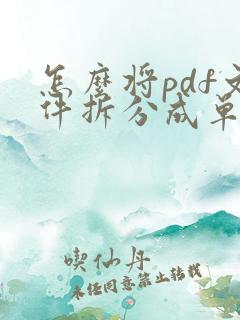 怎麼将pdf文
件拆分成单
喫仙丹
未经同意禁止转载